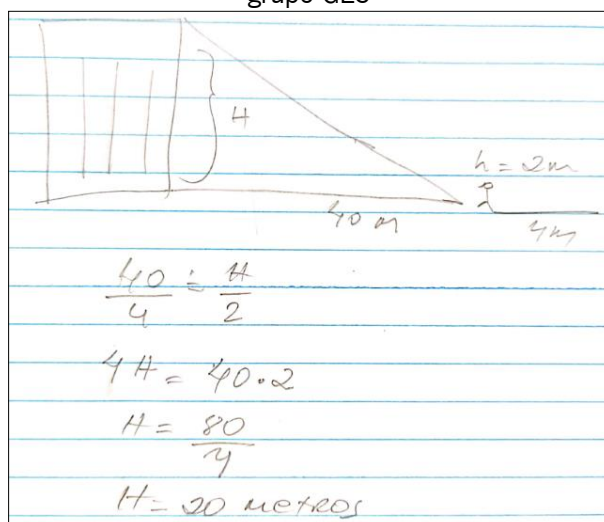 grupo GEO
H
h = 2m
40 m
4m
40/4 = H/2
4H = 40 • 2
H = 80/4
H = 20 metros